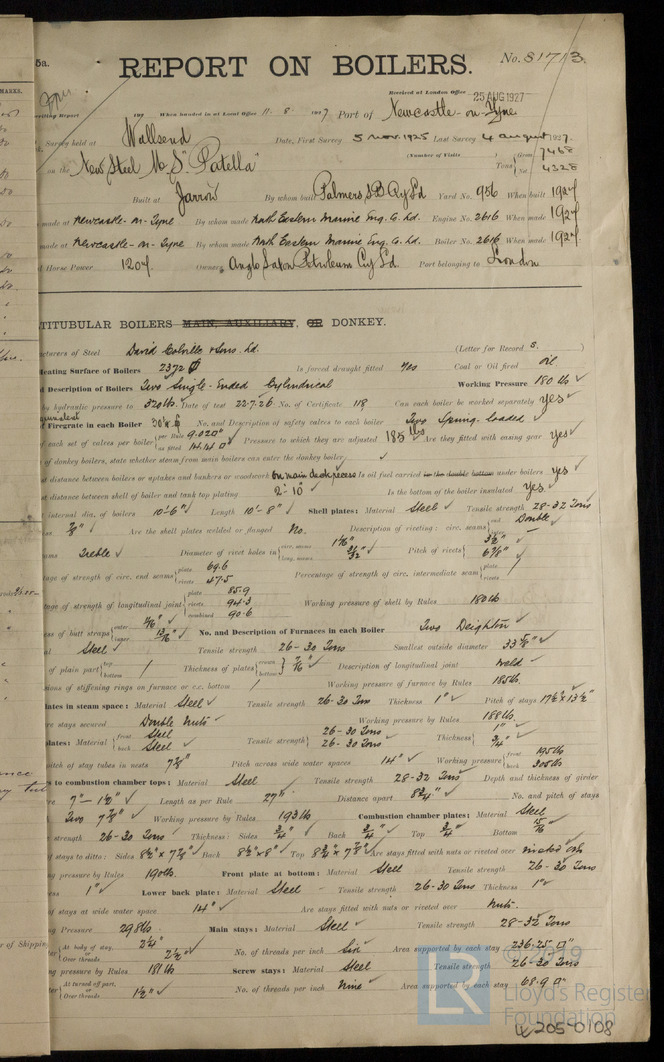 5a.
REPORT ON BOILERS.
No. 81713.
Received at London Office 25 AUG 1927
riting Report 192 When handed in at Local Office 11. 8. 1927 Port of Newcastle-on-Tyne
Survey held at Wallsend Date, First Survey 5 Nov. 1925 Last Survey 4 August 1927.
(Number of Visits
on the New Steel M.S. "Patella" Tons Gross 7468 Net 4328
Built at Jarrow By whom built Palmers S.B. Coy Ld Yard No. 956 When built 1927
made at Newcastle-on-Tyne By whom made North Eastern Marine Eng. Co. Ld. Engine No. 2616 When made 1927
made at Newcastle-on-Tyne By whom made North Eastern Marine Eng. Co. Ld. Boiler No. 2616 When made 1927
Horse Power 1207 Owners Anglo Saxon Petroleum Coy Ld Port belonging to London
TITUBULAR BOILERS MAIN, AUXILIARY, OR DONKEY.
cturers of Steel David Colville & Sons. Ld. (Letter for Record S.
Heating Surface of Boilers 2372 Is forced draught fitted yes Coal or Oil fired oil
d Description of Boilers Two Single-Ended Cylindrical Working Pressure 180 lb
by hydraulic pressure to 320 lb. Date of test 22.7.26 No. of Certificate 118 Can each boiler be worked separately yes
Firegrate in each Boiler No. and Description of safety valves to each boiler Two Spring-loaded
f each set of valves per boiler per Rule 9.02 □" as fitted 14.14 □" Pressure to which they are adjusted 185 lbs Are they fitted with easing gear yes
of donkey boilers, state whether steam from main boilers can enter the donkey boiler
distance between boilers or uptakes and bunkers or woodwork on main deck recess Is oil fuel carried in the double bottom under boilers yes
distance between shell of boiler and tank top plating 2'-10" Is the bottom of the boiler insulated yes
internal dia. of boilers 10'-6" Length 10'-8" Shell plates: Material Steel Tensile strength 28-32 Tons
7/8" Are the shell plates welded or flanged No. Description of riveting: circ. seams end Double
ms Treble Diameter of rivet holes in circ. seams long. seams Pitch of rivets 3 1/2" 6 7/8"
age of strength of circ. end seams plate 69.6 rivets 47.5 Percentage of strength of circ. intermediate seam plate rivets
age of strength of longitudinal joint plate 85.9 rivets 94.3 combined 90.6 Working pressure of shell by Rules 180 lb
ss of butt straps outer 11/16" inner 13/16" No. and Description of Furnaces in each Boiler Two Deighton
l Steel Tensile strength 26-30 Tons Smallest outside diameter 33 5/8"
of plain part top bottom Thickness of plates crown bottom 7/16" Description of longitudinal joint weld
ions of stiffening rings on furnace or c.c. bottom Working pressure of furnace by Rules 185 lb.
lates in steam space: Material Steel Tensile strength 26-30 Tons Thickness 1" Pitch of stays 17 1/2" x 13 1/2"
e stays secured Double nuts Working pressure by Rules 188 lb.
plates: Material front Steel back Steel Tensile strength 26-30 Tons 26-30 Tons Thickness 1" 3/4"
pitch of stay tubes in nests 7 5/8" Pitch across wide water spaces 14" Working pressure front 195 lb back 308 lb
s to combustion chamber tops: Material Steel Tensile strength 28-32 Tons Depth and thickness of girder
re 7" - 1 1/2" Length as per Rule 27" Distance apart 8 3/4" No. and pitch of stays
Two 7 7/8" Working pressure by Rules 193 lb Combustion chamber plates: Material Steel
strength 26-30 Tons Thickness: Sides 3/4" Back 3/4" Top 3/4" Bottom 15/16
f stays to ditto: Sides 8 1/2" x 7 7/8" Back 8 1/2" x 8" Top 8 3/4" x 7 7/8" Are stays fitted with nuts or riveted over
g pressure by Rules 190 lb. Front plate at bottom: Material Steel Tensile strength 26-30 Tons
ess 1" Lower back plate: Material Steel Tensile strength 26-30 Tons Thickness 1"
of stays at wide water space 14" Are stays fitted with nuts or riveted over nuts.
ng Pressure 298 lb Main stays: Material Steel Tensile strength 28-32 Tons
At body of stay, or Over threads 2 1/4" 2 1/2" No. of threads per inch Six Area supported by each stay 236.25 □"
ng pressure by Rules 181 lb Screw stays: Material Steel Tensile strength 26-30 Tons
At turned off part, or Over threads 1 1/2" No. of threads per inch nine Area supported by each stay 68.9 □"
© 2019
LR Lloyd's Register Foundation
W205-0108
MARKS.
r of Shipping